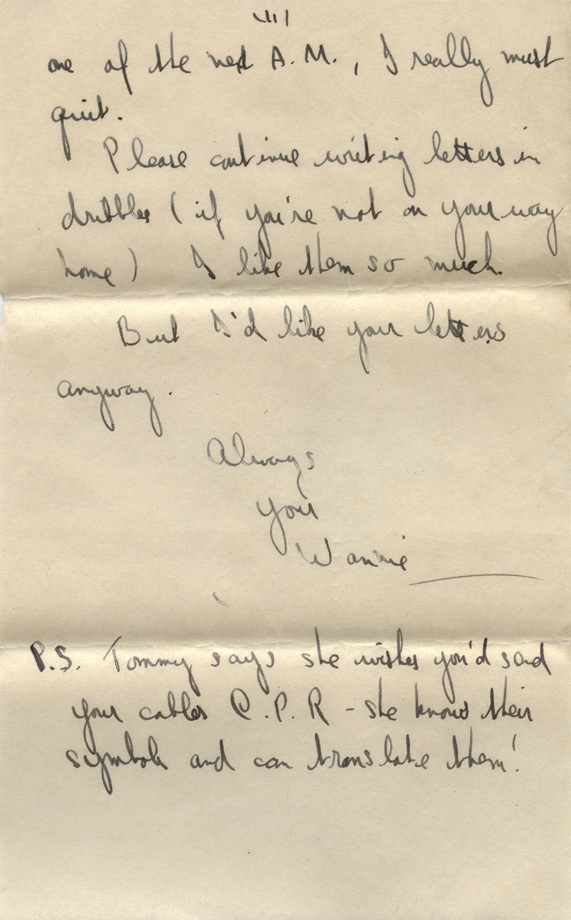 one of the next A.M., I really must
quit.
Please continue writing letters in
dribbles (if you're not on your way
home) I like them so much.
But I'd like your letters
anyway.
Always
your
Wannie
P.S. Tommy says she wishes you'd send
your cables C.P.R - she knows their
symbols and can translate them!